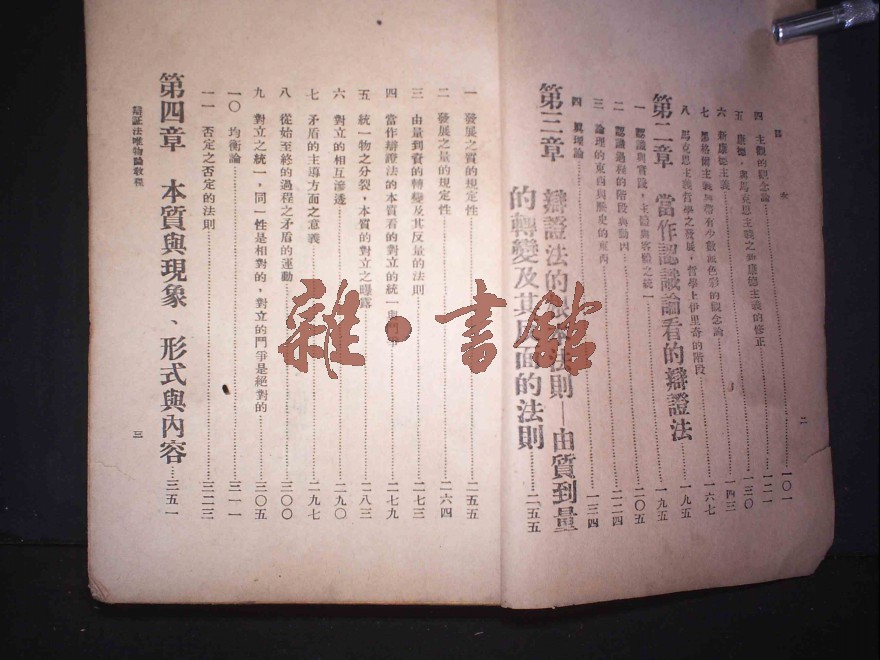 目
四 主觀的觀念論……一〇一
五 康德,與馬克思主義之新康德主義的修正……一二一
六 新康德主義……一三〇
七 黑格爾主義無帶有少數派色彩的觀念論……一四三
八 馬克思主義哲學之發展,哲學上伊里奇的階段……一六七
第二章 當作認識論看的辯證法……一九五
一 認識與實踐,主觀與客觀之統一……一九五
二 認識過程的階段與動因……二〇五
三 論理的東西與歷史的東西……二二四
四 眞理論……二三四
第三章 辯證法的根本法則——由質到量的轉變及其反面的法則……二五五
二
一 發展之質的規定性……二五五
二 發展之量的規定性……二六四
三 由量到質的轉變及其反量的法則……二七三
四 當作辯證法的本質看的對立的統一與鬥爭……二七九
五 統一物之分裂,本質的對立之曝露……二八三
六 對立的相互滲透……二九〇
七 矛盾的主導方面之意義……二九七
八 從始至終的過程之矛盾的運動……三〇〇
九 對立之統一,同一性是相對的,對立的鬥爭是絕對的……三〇五
一〇 均衡論……三一一
一一 否定之否定的法則……三二三
第四章 本質與現象、形式與內容……三五一
辯証法唯物論敎程
三
雜·書舘